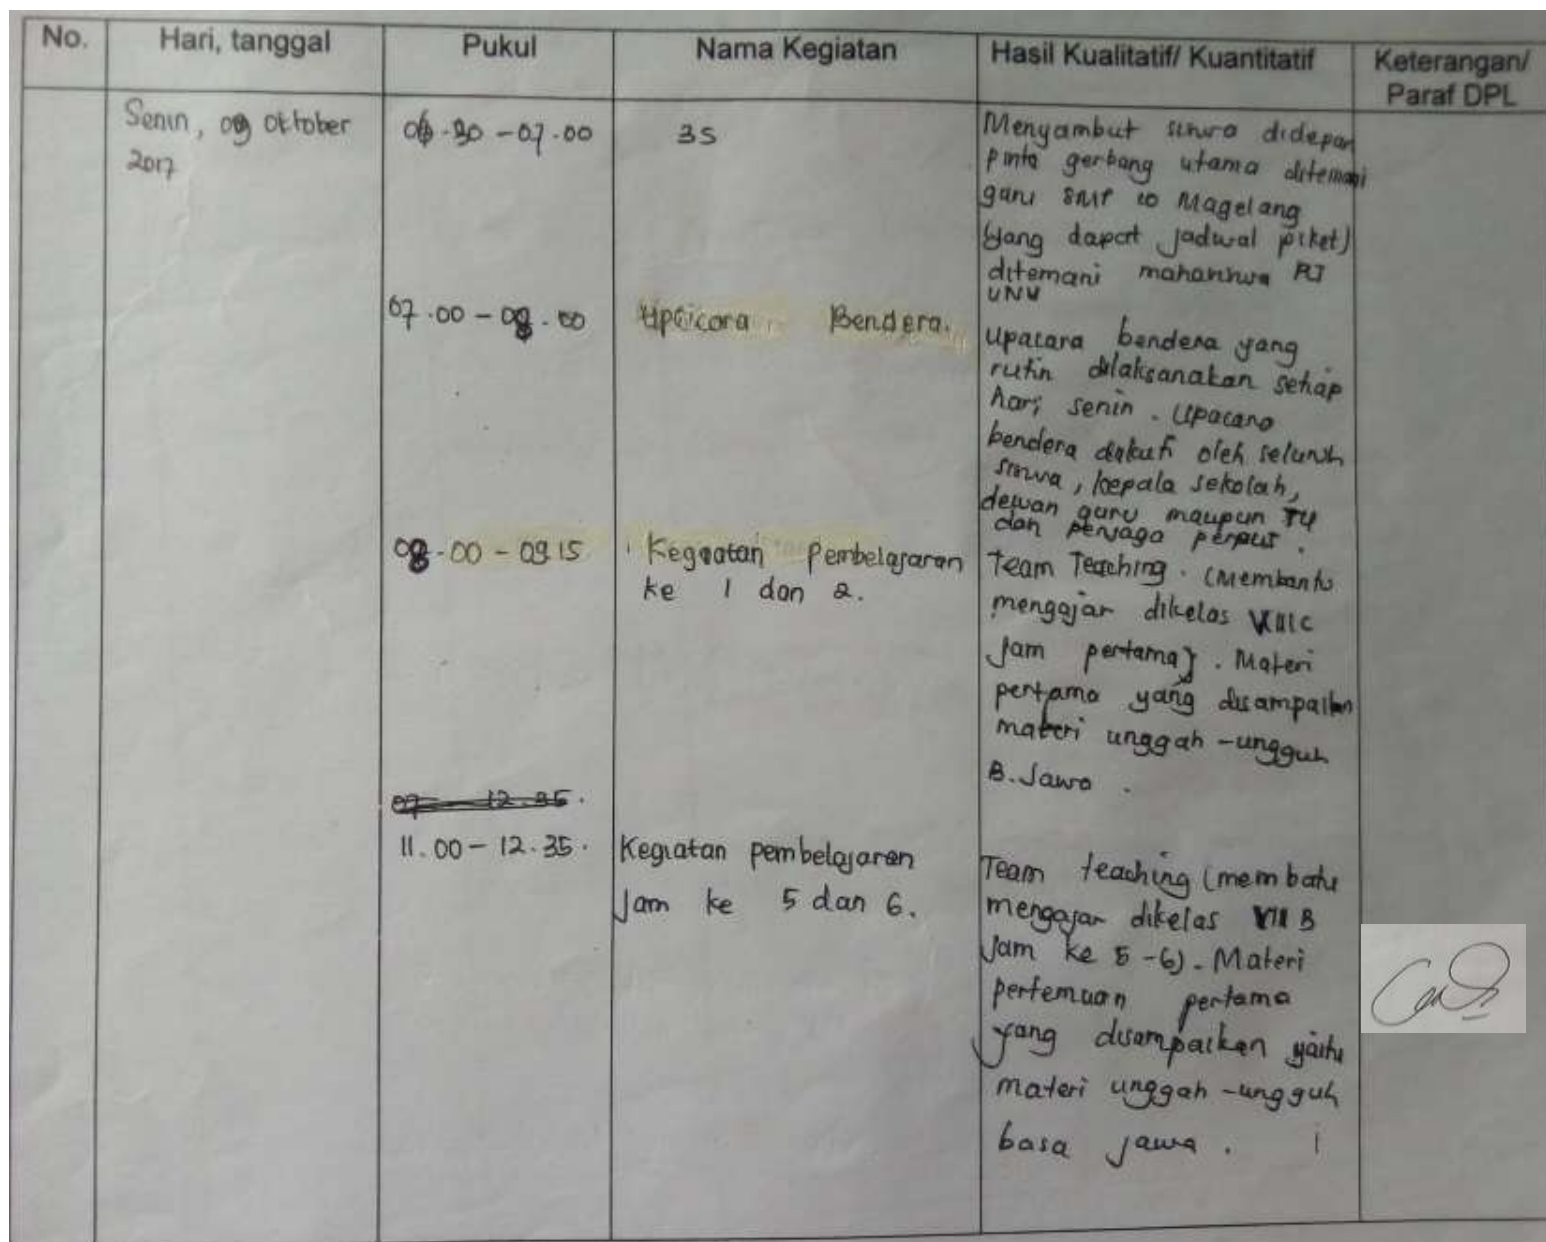 No.
Hari, tanggal
Pukul
Nama Kegiatan
Hasil Kualitatif/ Kuantitatif
Keterangan/
Paraf DPL
Senin, 09 Oktober
2017
06.30 - 07.00
3S
Menyambut siswa didepan
pinta gerbang utama ditemani
guru SMP 10 Magelang
(yang dapat jadwal piket)
ditemani mahasiswa
UNY
07.00 - 08.00
Upacara Bendera.
Upacara bendera yang
rutin dilaksanakan setiap
hari senin. Upacara
bendera diikuti oleh seluruh
siswa, kepala sekolah,
dewan guru maupun TU
dan penjaga perpus.
08.00 - 09.15
Kegiatan Pembelajaran
ke 1 dan 2.
Team Teaching. (Membantu
mengajar dikelas VIII C
Jam pertama). Materi
pertama yang disampaikan
materi unggah-ungguh
B. Jawa.
11.00 - 12.35.
Kegiatan pembelajaran
Jam ke 5 dan 6.
Team teaching (membatu
mengajar dikelas VIII B
Jam ke 5-6). Materi
pertemuan pertama
yang disampaikan yaitu
materi unggah-ungguh
basa jawa.